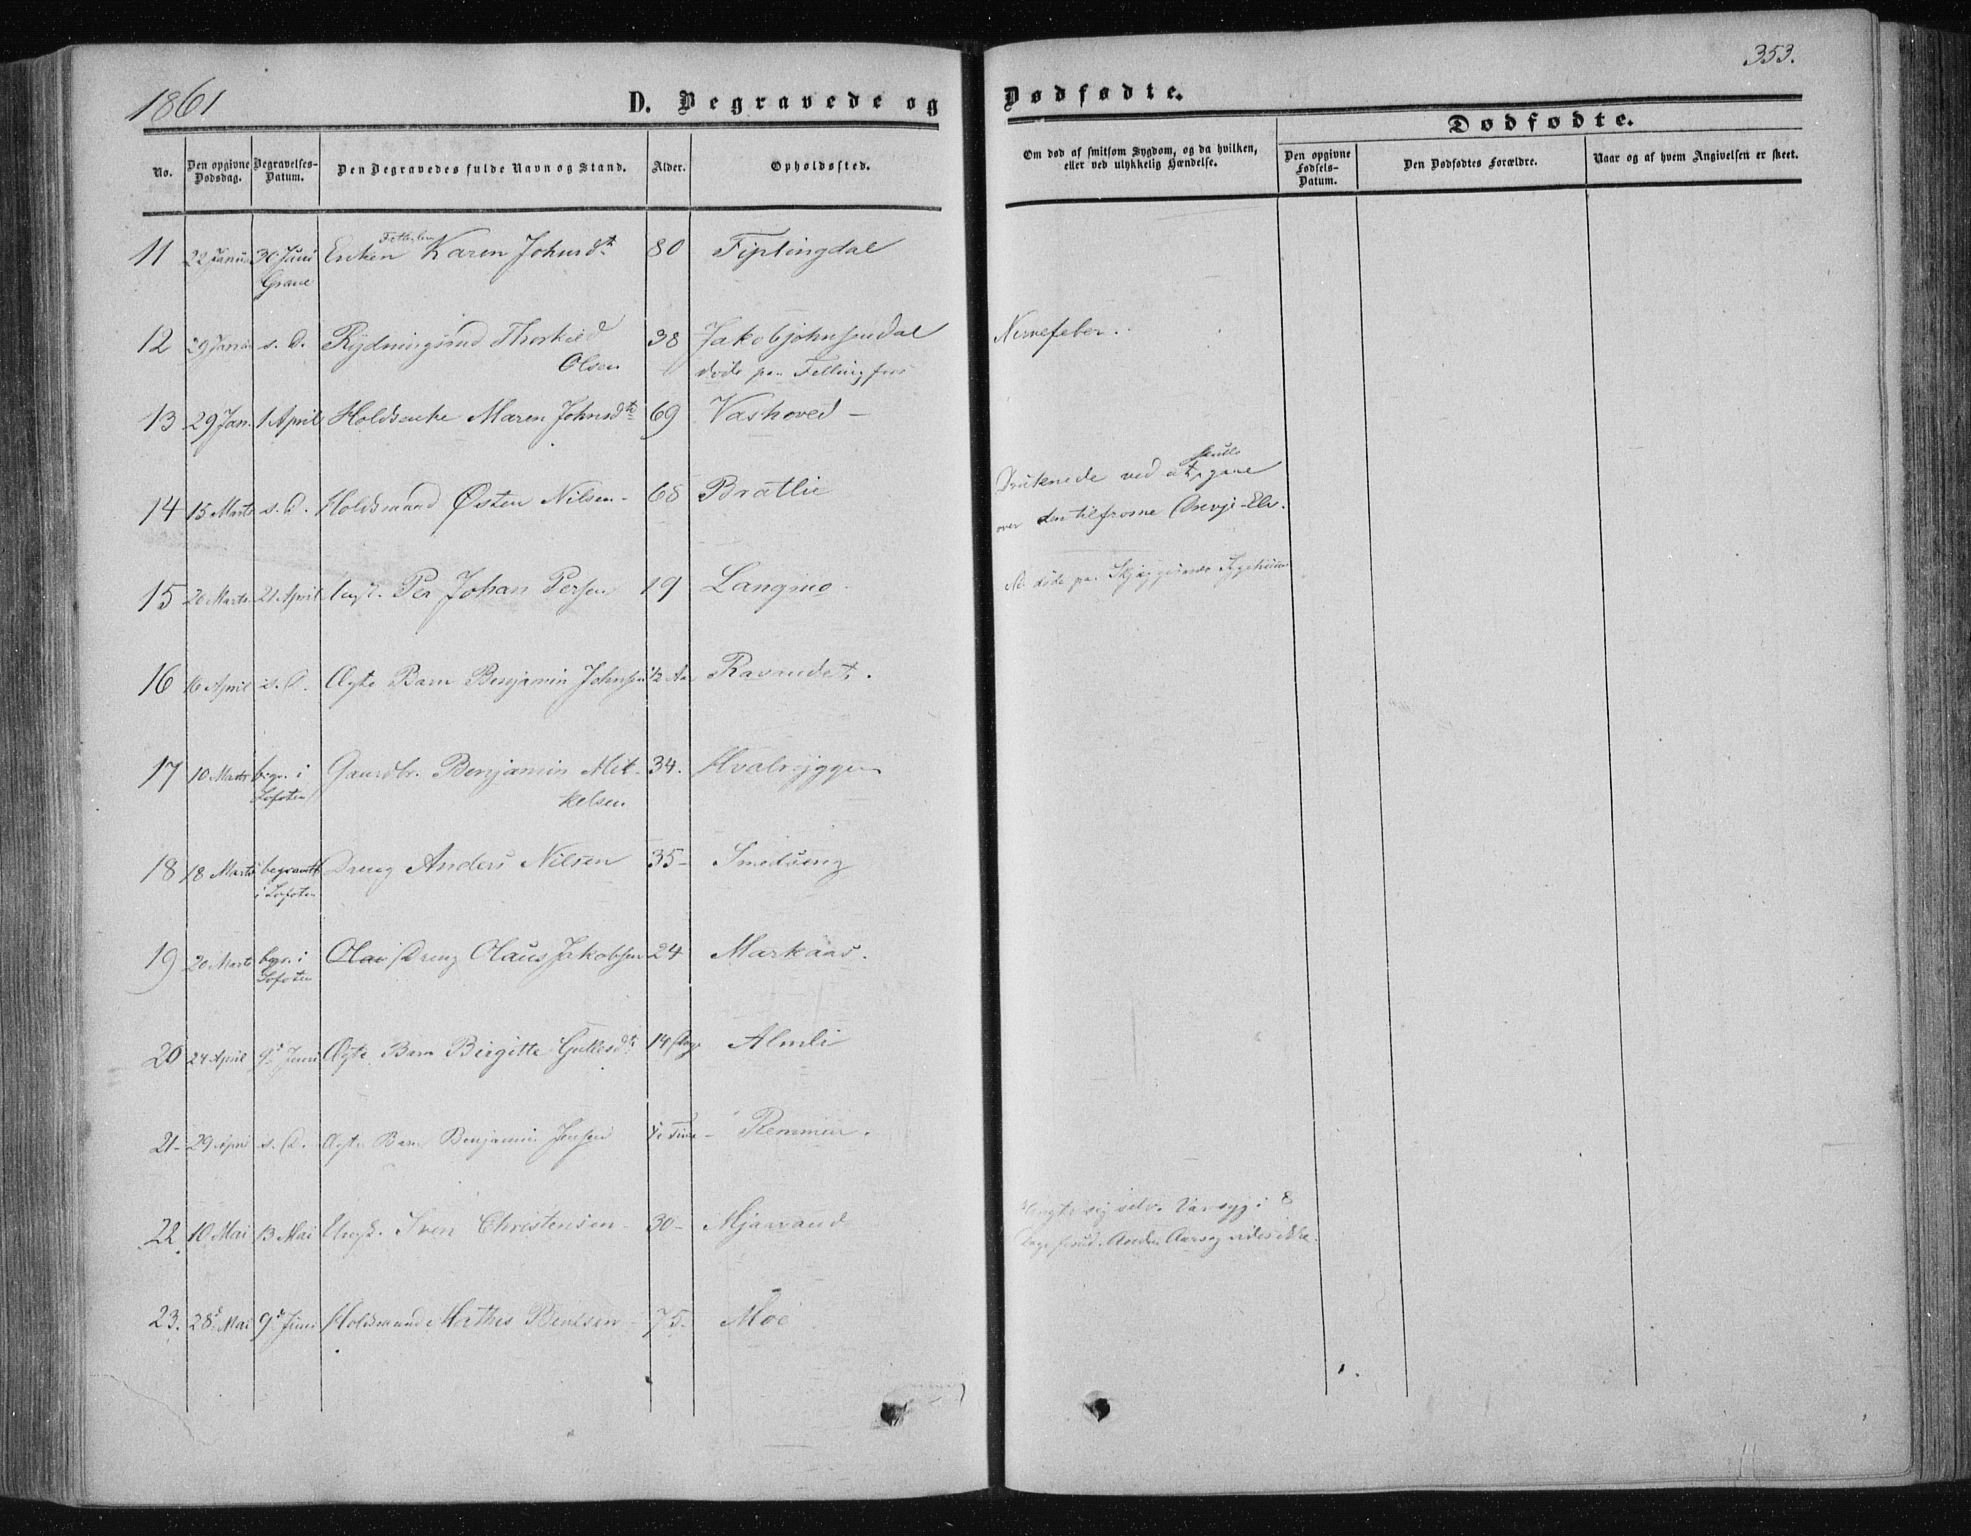 1861
353.
D. Begravede og Dødfødte.
Dødfødte.
No.
Den opgivne Dødsdag.
Begravelses-Datum.
Den Begravedes fulde Navn og Stand.
Alder.
Opholdssted.
Om død af smitsom Sygdom, og da hvilken, eller ved ulykkelig Hændelse.
Den opgivne Fødsels-Datum.
Den Dødfødtes Forældre.
Naar og af hvem Angivelsen er skeet.
11 22 Januar 30 Juni Enken Karen Johnsdt. 80 Fiplingdal
12 29 Januar s. D. Rydningsmd Thorkild 38 Jakobjohnsendal Nervefeber.
Olsen døde paa Fellingfors
13 29 Jan. 1 April Holdsenke Maren Johnsdtr 69 Vashoved -
14 15 Marts s. D. Holdsmand Østen Nilsen - 68 Bratlie Druknede ved at skulle gaae
over den tilfrosne
15 20 Marts 21 April Ungk. Per Johan Persen 19 Langmo - døde paa Sygehuus
16 16 April s. D. Ægte Barn Benjamin Johnsen 1/2 Aar Ravnudet.
17 10 Marts begr. i Gaardbr. Benjamin Mik- 34. Hvalryggen
Lofoten kelsen
18 18 Marts begravet Dreng Anders Nilsen 35 - Smedseng
i Lofoten
19 20 Marts begr. i Dreng Olaus Jakobsen 24 Markaas.
Lofoten
20 24 April 9d Juni Ægte Barn Birgitte dtr 14 Dage Almli
21 - 29 April s. D. Ægte Barn Benjamin Jensen - Remmen.
22 10 Mai 13 Mai Ungk. Sven Christensen - 30 - Mjavand Hængte sig selv. Var syg i 8
Dage forud. Anden Aarsag vides ikke.
23. 28d Mai 9d Juni Holdsmand Mathis Bentsen - 75 - Moe